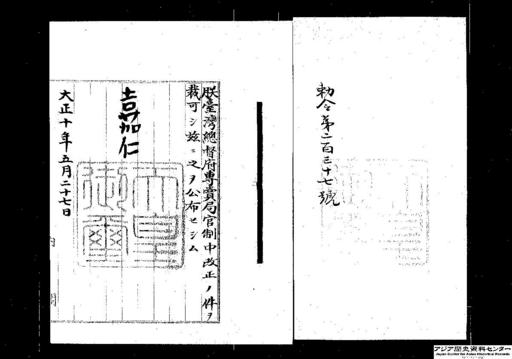 勅令第二百三十七號
朕臺灣總督府專賣局官制中改正ノ件ヲ
裁可シ玆ニ之ヲ公布セシム
嘉仁
天皇
御璽
大正十年五月二十七日
アジア歴史資料センター
Japan Center for Asian Historical Records